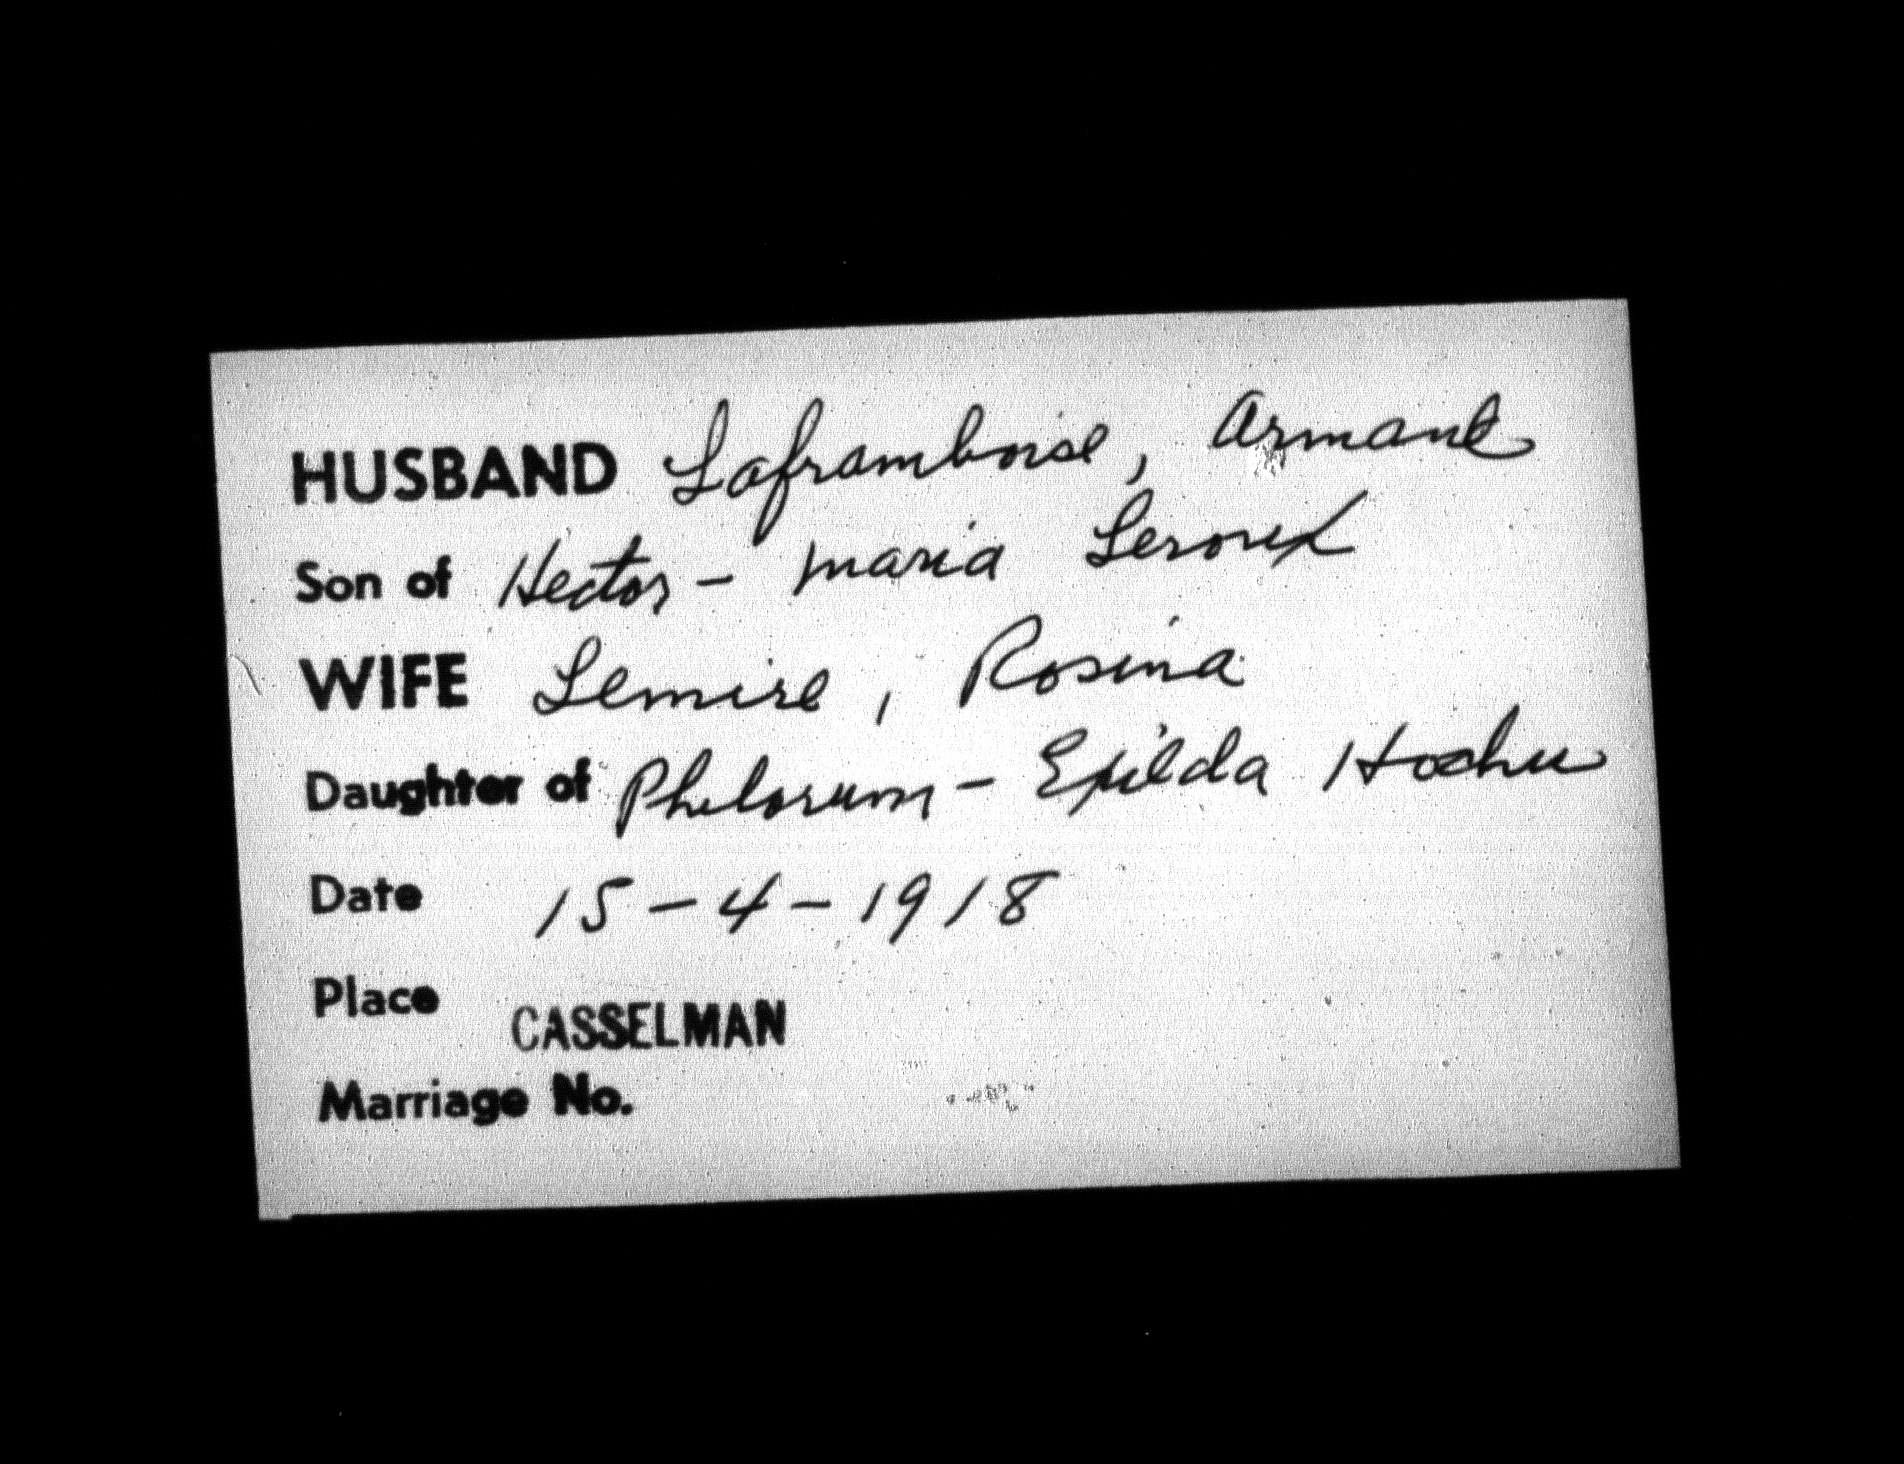 HUSBAND Laframboise, Armand
Son of Hector - Maria Leroux
WIFE Lemire, Rosina
Daughter of Philorum - Exilda Hochu
Date 15-4-1918
Place CASSELMAN
Marriage No.